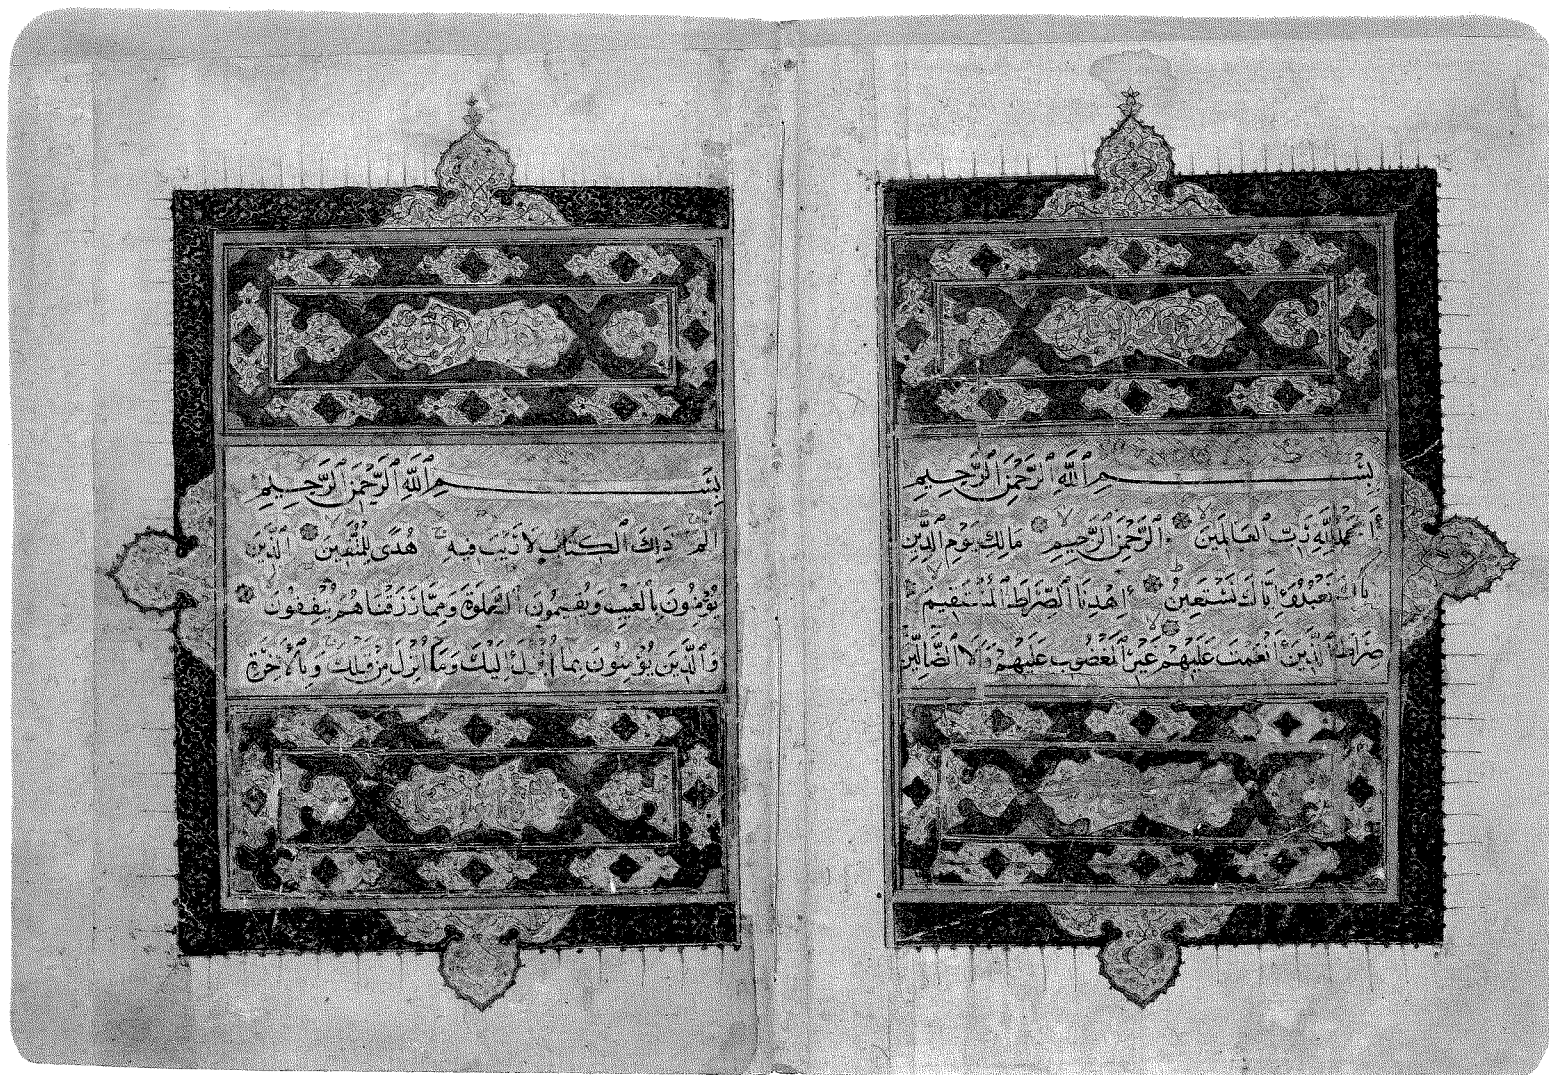 بِسْمِ ٱللَّهِ ٱلرَّحْمَٰنِ ٱلرَّحِيمِ
اَلْحَمْدُ لِلَّهِ رَبِّ ٱلْعَالَمِينَ ٱلرَّحْمَٰنِ ٱلرَّحِيمِ مَالِكِ يَوْمِ ٱلدِّينِ
إِيَّاكَ نَعْبُدُ وَإِيَّاكَ نَسْتَعِينُ اِهْدِنَا ٱلصِّرَاطَ ٱلْمُسْتَقِيمَ
صِرَاطَ ٱلَّذِينَ أَنْعَمْتَ عَلَيْهِمْ غَيْرِ ٱلْمَغْضُوبِ عَلَيْهِمْ وَلَا ٱلضَّالِّينَ
بِسْمِ ٱللَّهِ ٱلرَّحْمَٰنِ ٱلرَّحِيمِ
الٓمٓ ذَٰلِكَ ٱلْكِتَابُ لَا رَيْبَ فِيهِ هُدًى لِلْمُتَّقِينَ ٱلَّذِينَ
يُؤْمِنُونَ بِٱلْغَيْبِ وَيُقِيمُونَ ٱلصَّلَوٰةَ وَمِمَّا رَزَقْنَاهُمْ يُنْفِقُونَ
وَٱلَّذِينَ يُؤْمِنُونَ بِمَا أُنْزِلَ إِلَيْكَ وَمَا أُنْزِلَ مِنْ قَبْلِكَ وَبِٱلْأَخِرَةِ